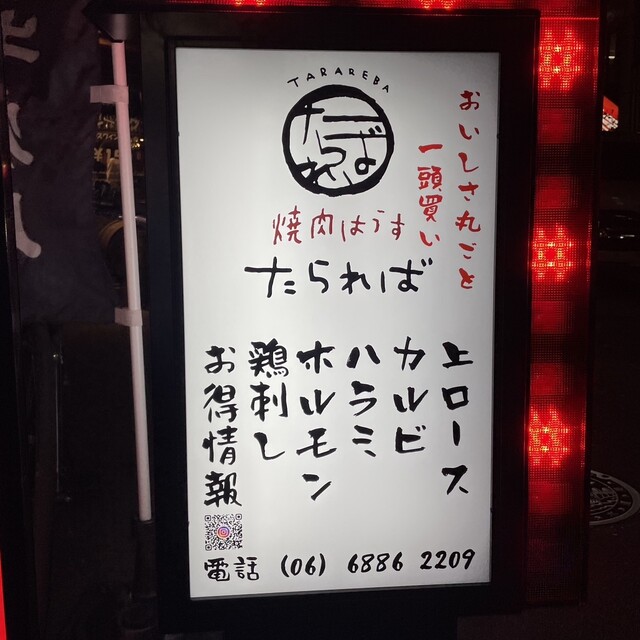 TARAREBA
たられば
おいしさ丸ごと
一頭買い
焼肉はうす
たられば
上ロース
カルビ
ハラミ
ホルモン
鶏刺し
お得情報
電話 (06) 6886 2209